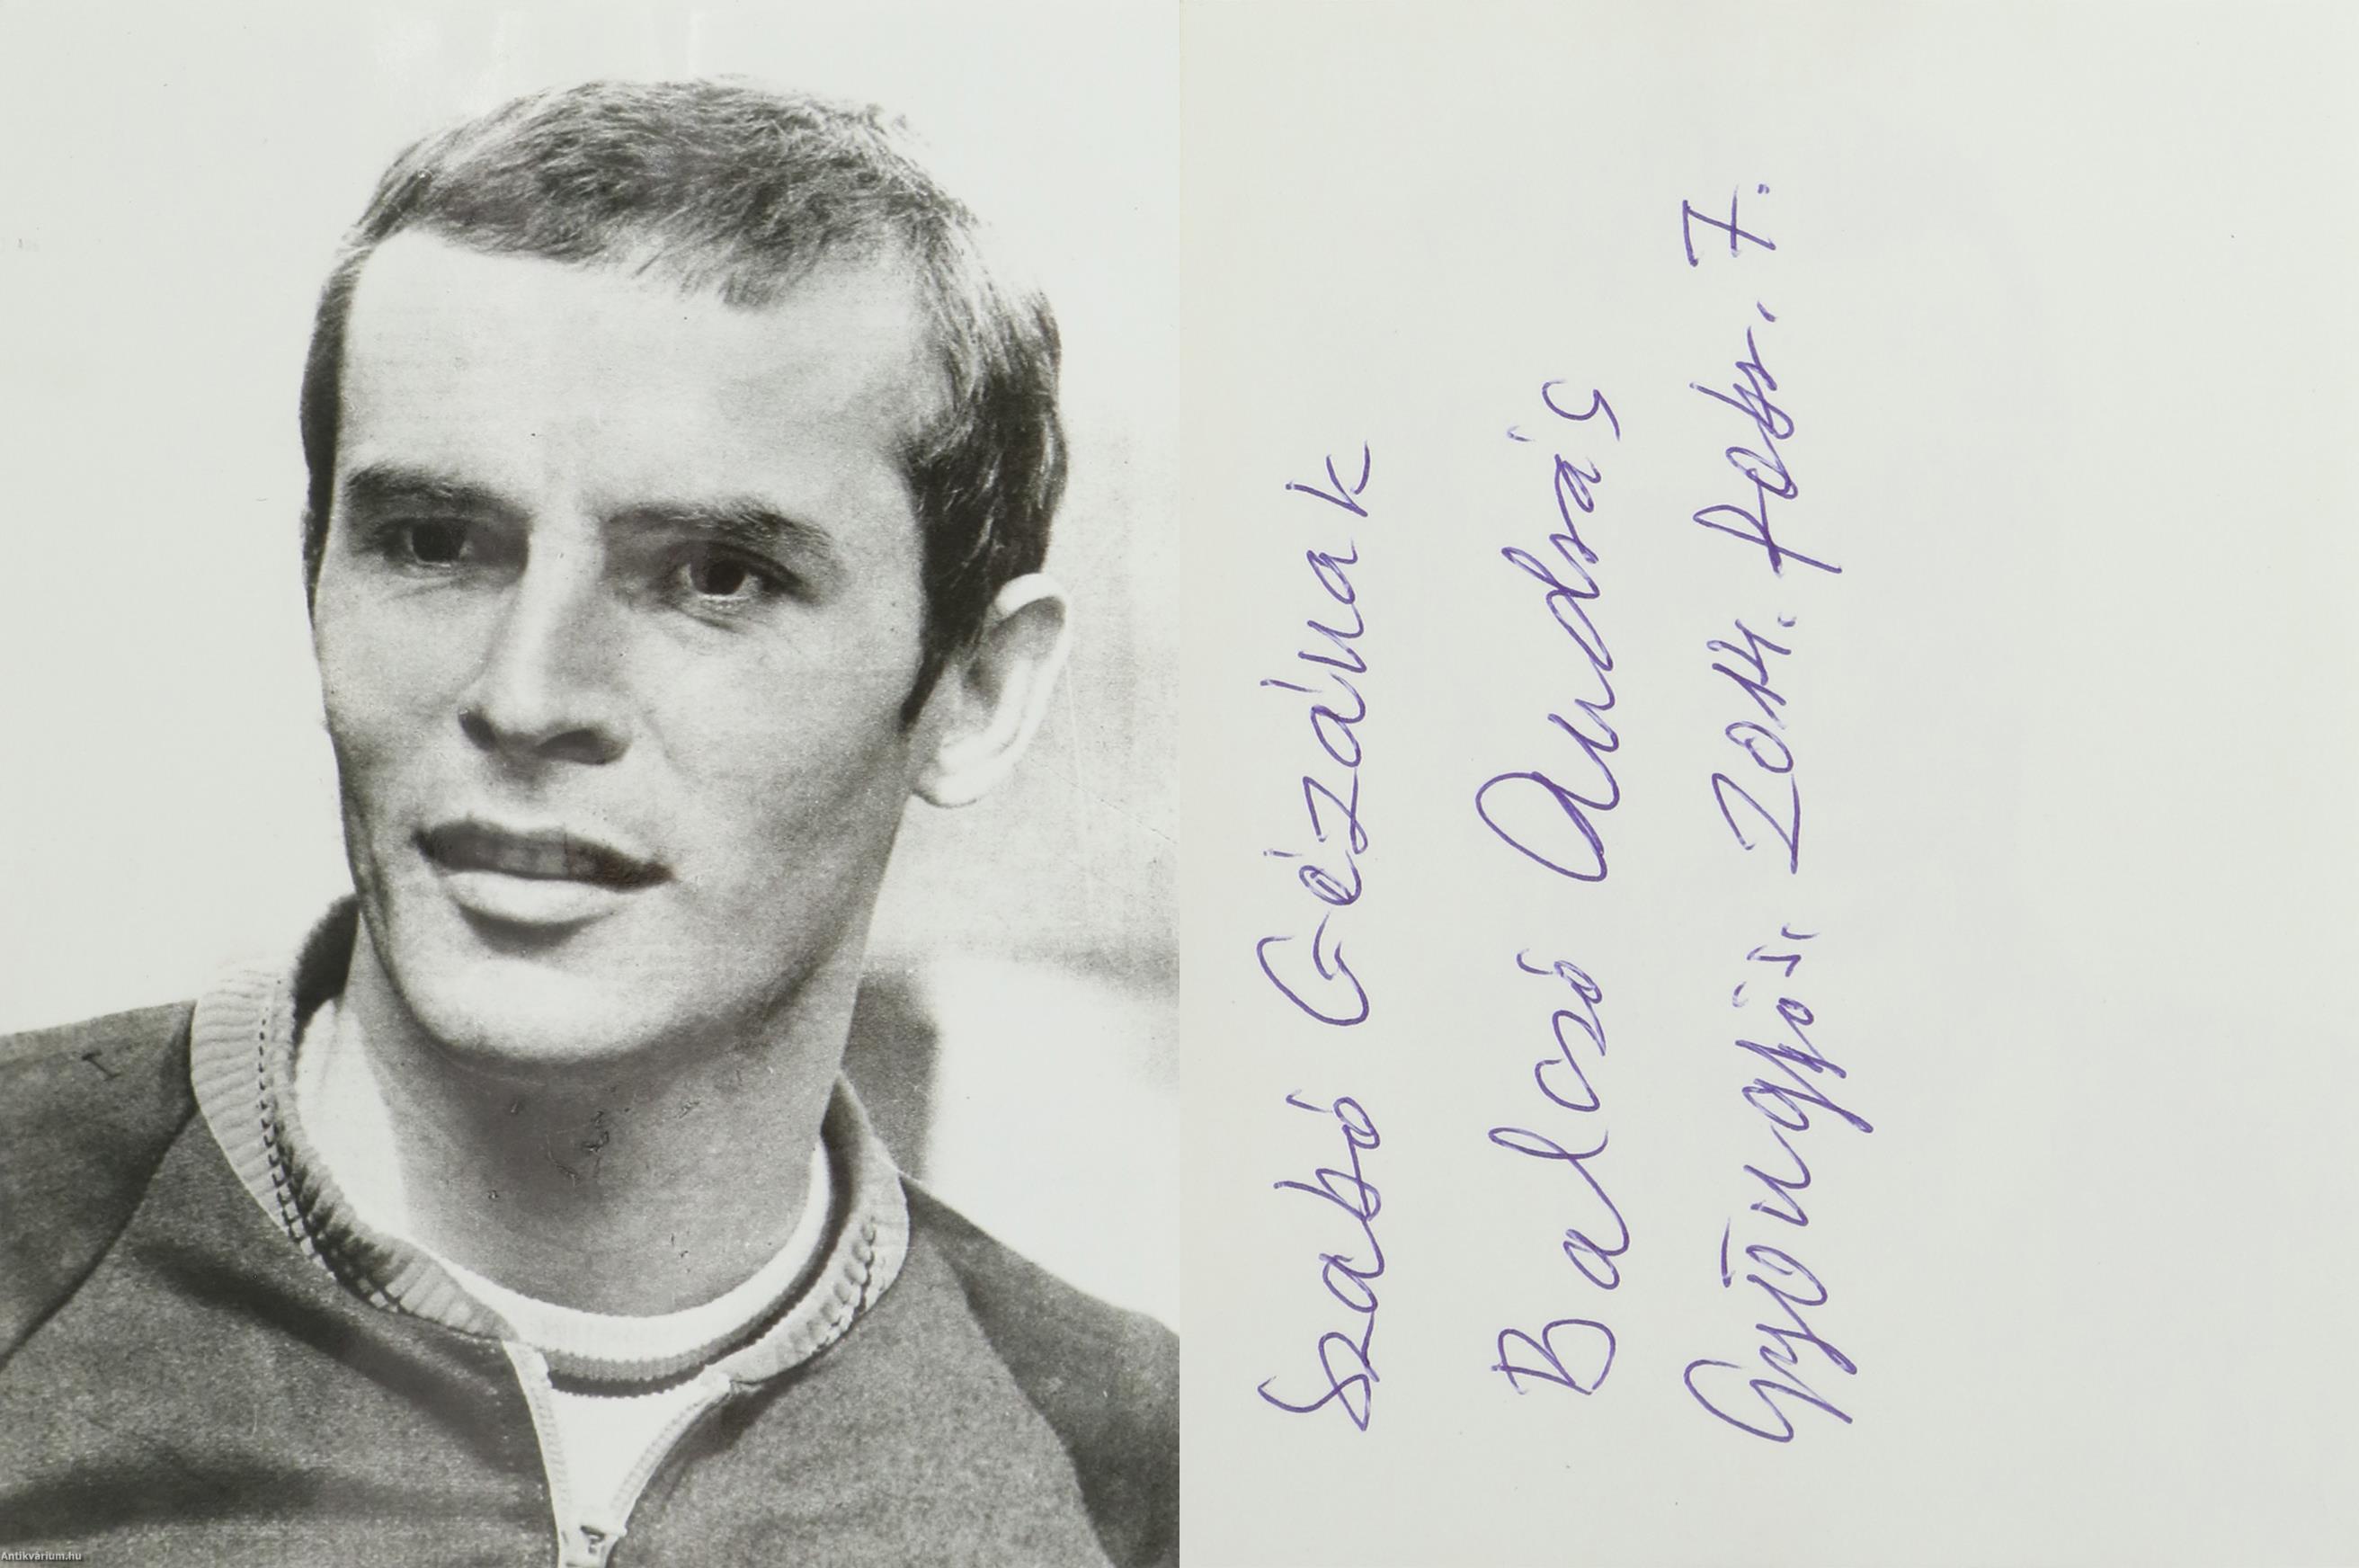 Szabó Gézának
Balczó András
Gyöngyös, 2014. febr. 7.
Antikvárium.hu